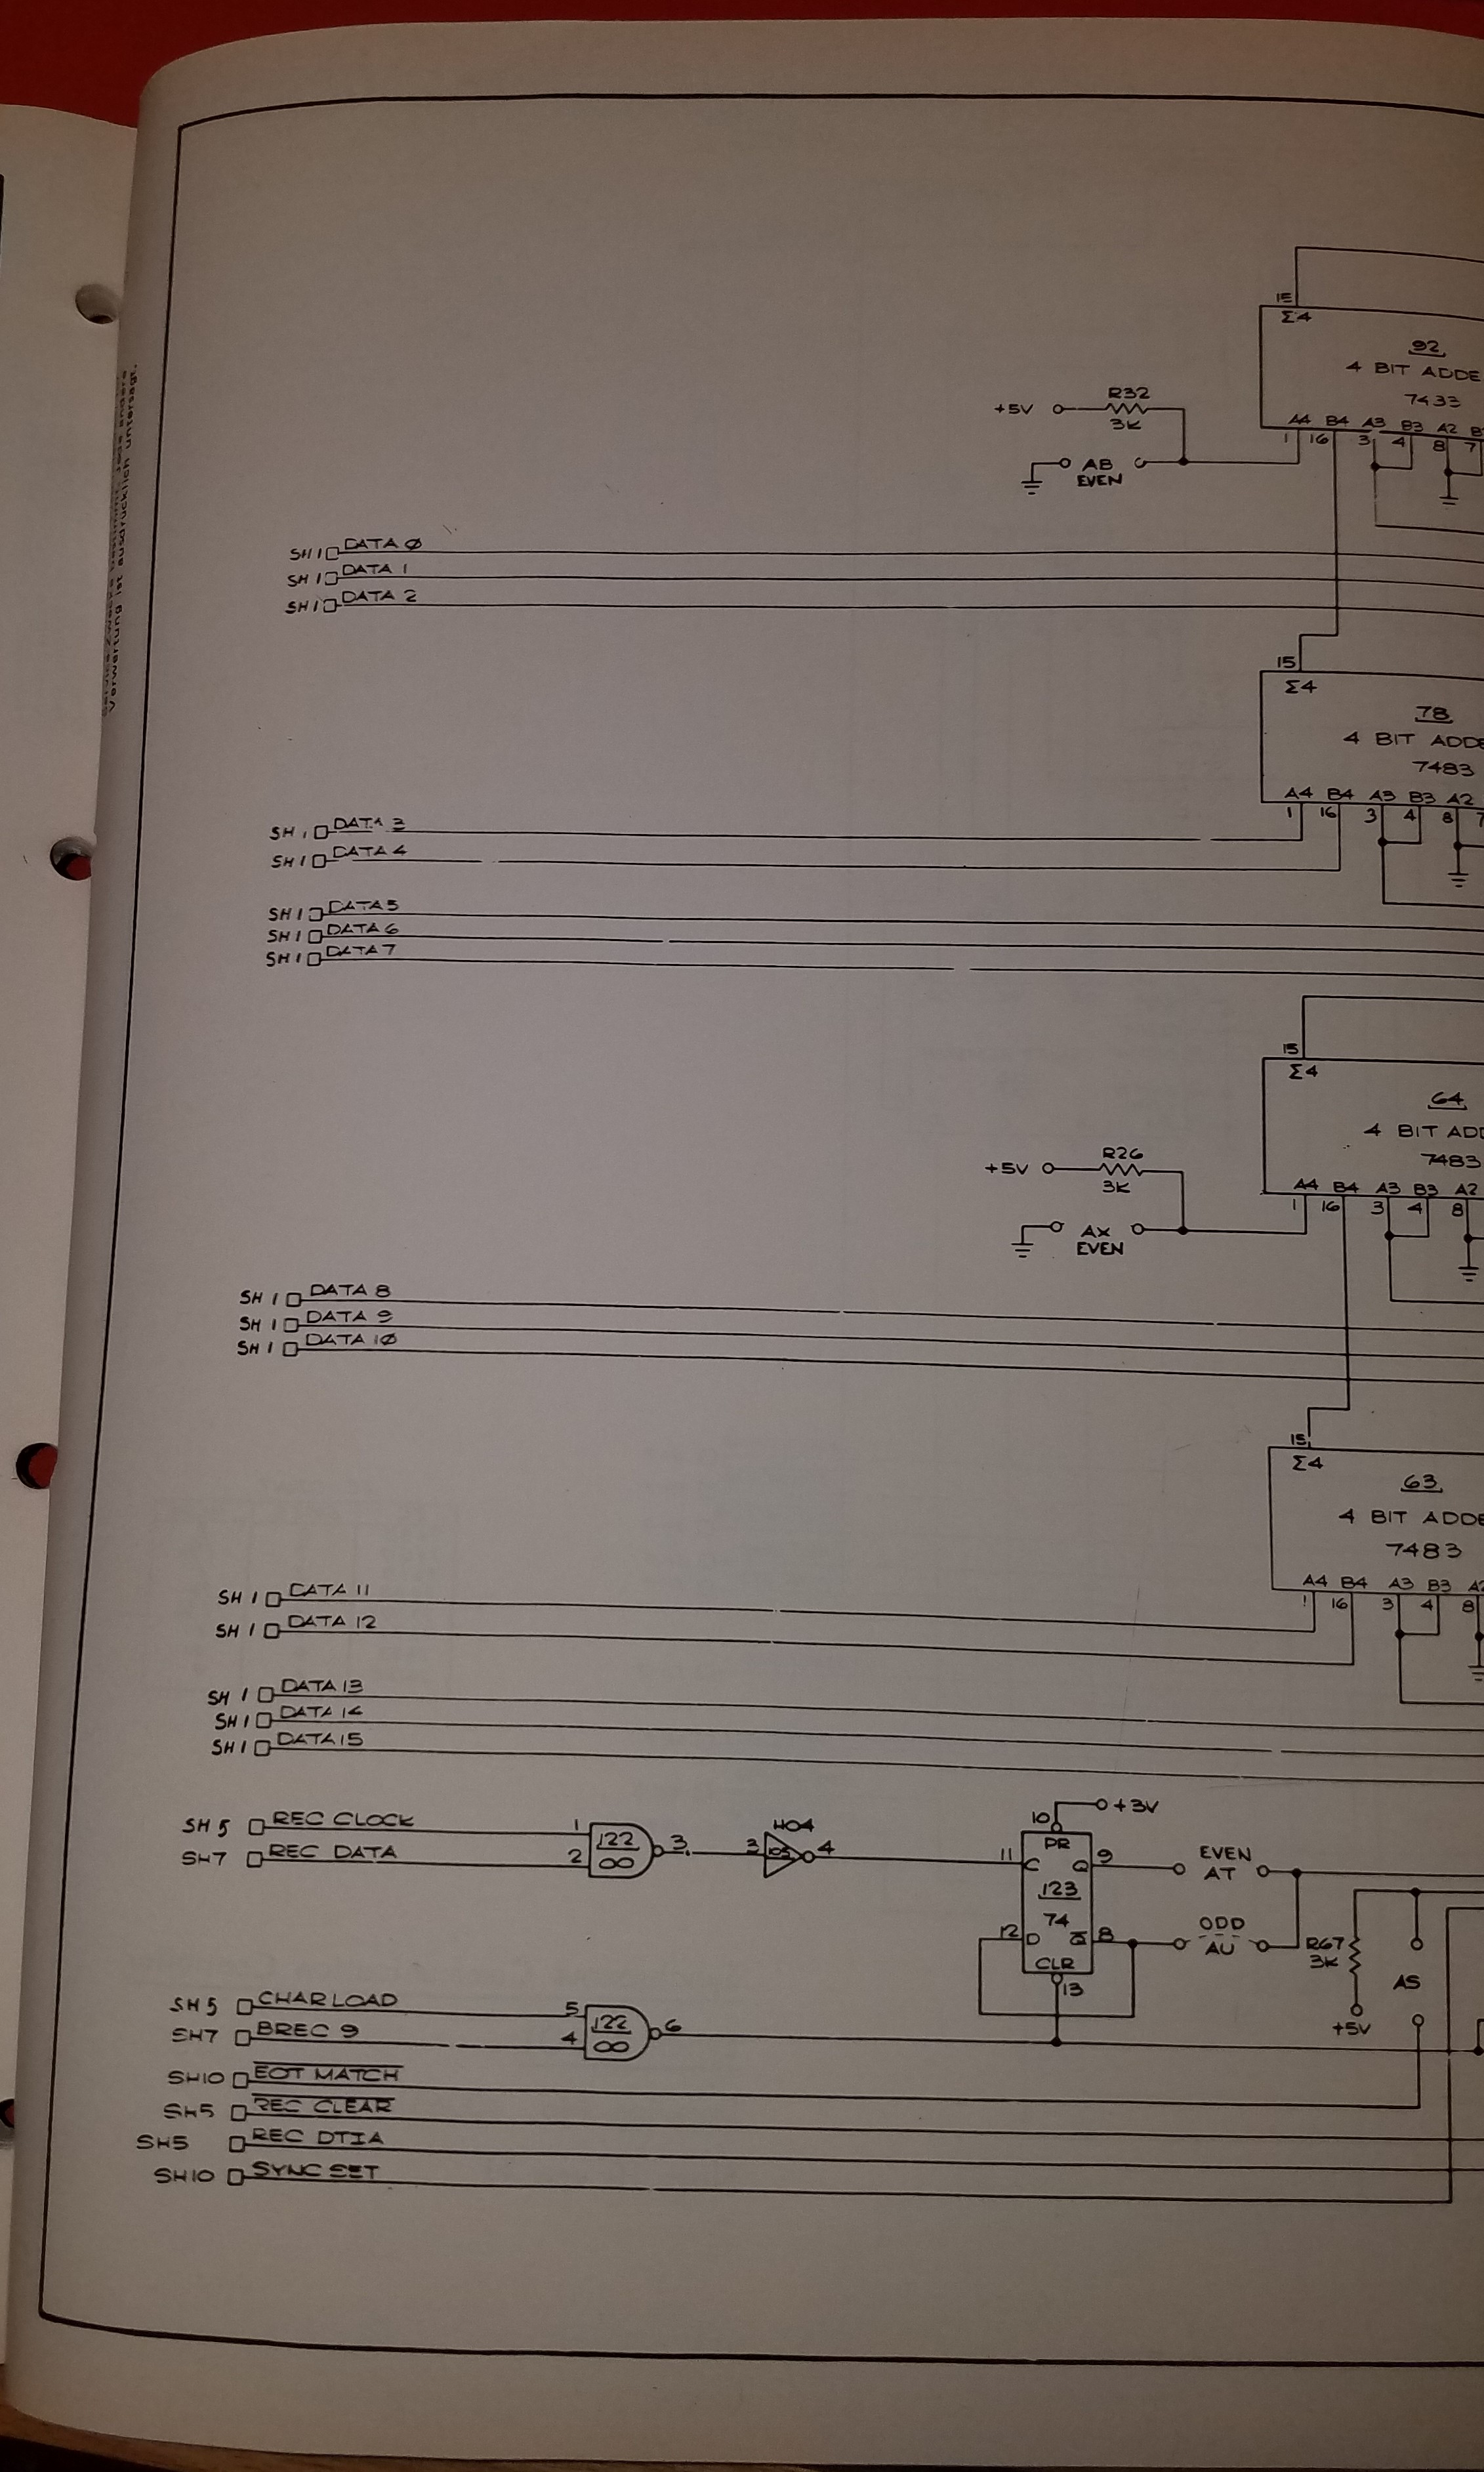 Verwertung ist ausdrücklich untersagt.
15
Σ4
92
4 BIT ADDE
7433
A4 B4 A3 B3 A2 B
1 16 3 4 8 7
+5V
R32
3K
AB
EVEN
SH 1 DATA Ø
SH 1 DATA 1
SH 1 DATA 2
15
Σ4
78
4 BIT ADDE
7483
A4 B4 A3 B3 A2
1 16 3 4 8 7
SH 1 DATA 3
SH 1 DATA 4
SH 1 DATA 5
SH 1 DATA 6
SH 1 DATA 7
15
Σ4
64
4 BIT ADD
7483
A4 B4 A3 B3 A2
1 16 3 4 8
+5V
R26
3K
AX
EVEN
SH 1 DATA 8
SH 1 DATA 9
SH 1 DATA 1Ø
15
Σ4
63
4 BIT ADDE
7483
A4 B4 A3 B3 A2
1 16 3 4 8
SH 1 DATA 11
SH 1 DATA 12
SH 1 DATA 13
SH 1 DATA 14
SH 1 DATA 15
SH 5 REC CLOCK
SH7 REC DATA
1
2
122
00
3
3
H04
105
4
10
+3V
PR
11
C
Q
9
123
74
12
D
Q̅
8
CLR
13
EVEN
AT
ODD
AU
R67
3K
+5V
AS
SH 5 CHAR LOAD
SH7 BREC 9
5
4
122
00
6
SH10 EOT MATCH
SH5 REC CLEAR
SH5 REC DTIA
SH10 SYNC SET